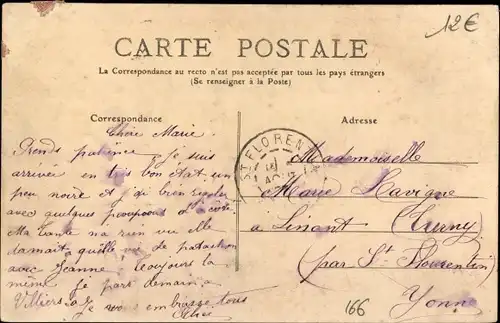 12€
CARTE POSTALE
La Correspondance au recto n'est pas acceptée par tous les pays étrangers
(Se renseigner à la Poste)
Correspondance
Adresse
Chère Marie
Prends patience je suis
arrivée en très bon état un
peu noire et j'ai bien
avec quelques
Ma tante n'a rien vu elle
quelle vie de patachon
avec Jeanne toujours la
même je pars demain a
Villiers je vous embrasse tous
ST FLORENTIN
Mademoiselle
Marie Lavigne
a
(par St Florentin)
Yonne
166